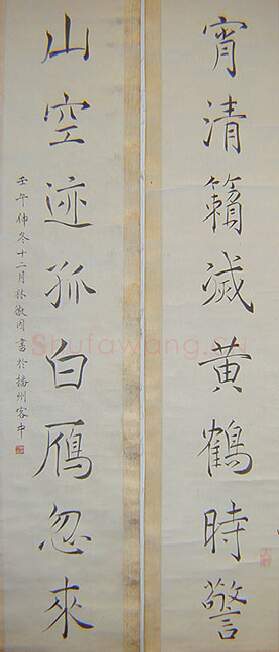 宵清籟滅黃鶴時警
山空迹孤白鴈忽來
壬午仲冬十二月林同書於播州客中
Shufawang.cn